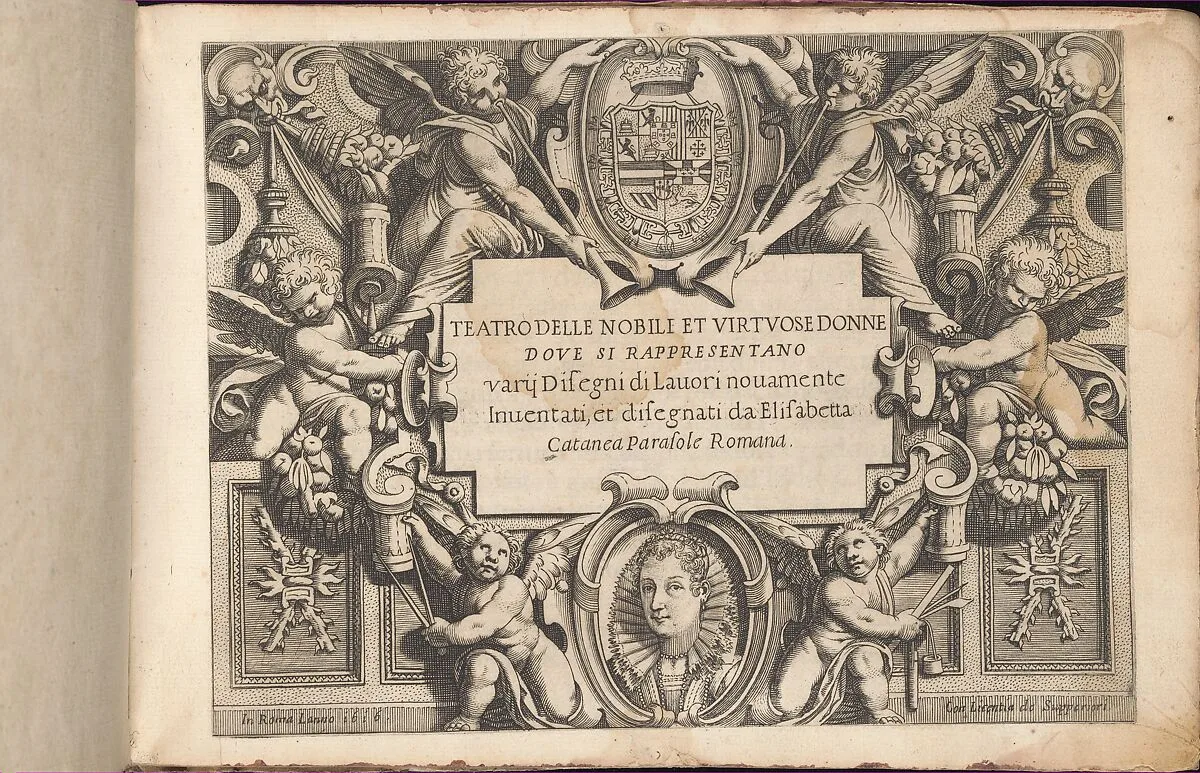 TEATRO DELLE NOBILI ET VIRTVOSE DONNE
DOVE SI RAPPRESENTANO
varij Diſegni di Lauori nouamente
Inuentati, et diſegnati da Eliſabetta
Catanea Paraſole Romana.
In Roma Lanno 1616.
Con Licentia de Supperiori